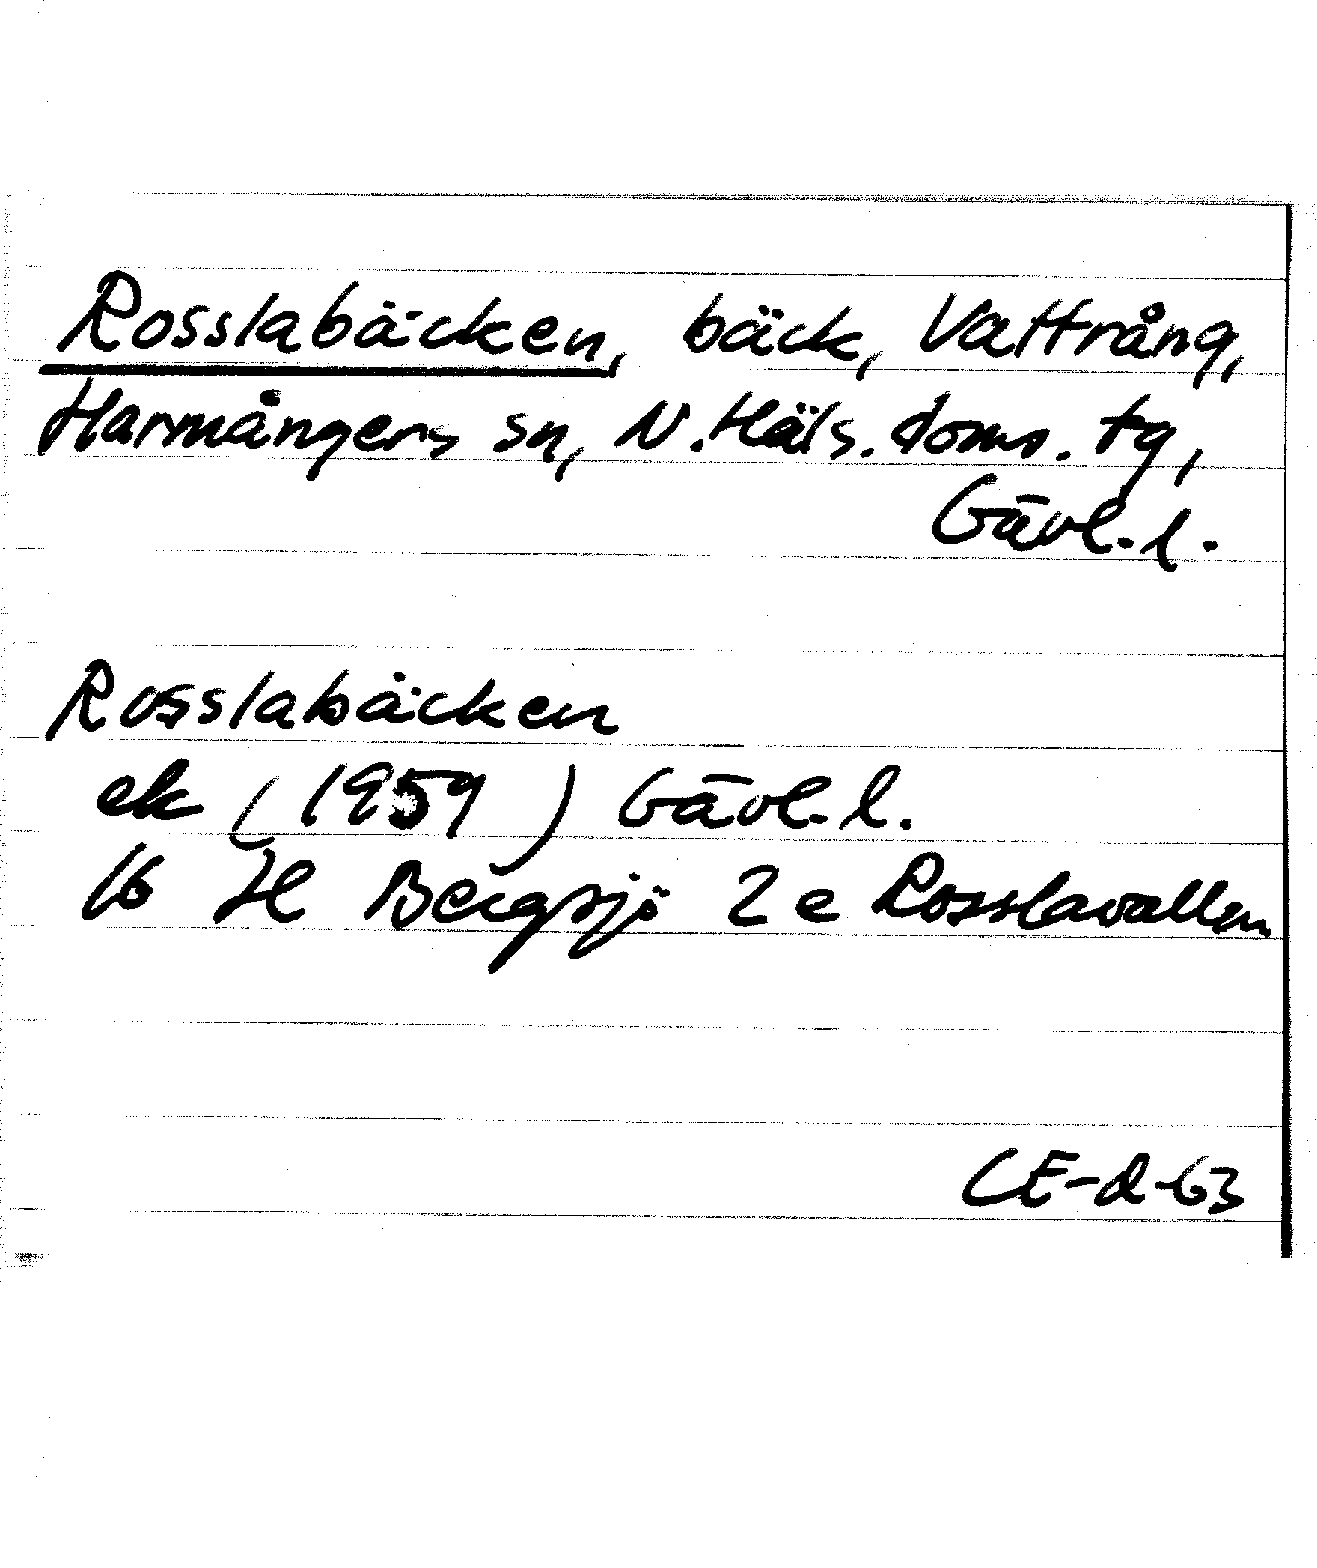 Rosslabäcken, bäck, Vattrång,
Harmångers sn, N. Häls. doms. tg,
Gävl. l.
Rosslabäcken
ek (1959) Gävl. l.
16 H Bergsjö 2 e Rosslavallen
CE-d-63